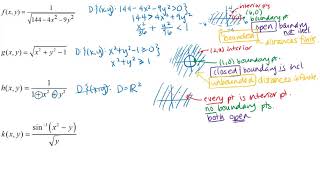 f(x, y) = 1 / √(144 − 4x² − 9y²)
D: {(x,y): 144-4x²-9y²>0}
144 > 4x²+9y²
x²/36 + y²/16 < 1
interior pt
(6,0)
boundary pt.
open boundary not incl
bounded distances finite
g(x, y) = √(x² + y² − 1)
D: {(x,y): x²+y²-1≥0}
x²+y²≥1
interior
(1,0) boundary pt.
closed boundary is incl
unbounded distances infinite.
h(x, y) = 1 / (1 + x² + y²)
D: {(x,y): D = ℝ²
every pt is interior pt.
no boundary pts.
both open
k(x, y) = sin⁻¹(x² − y) / √y